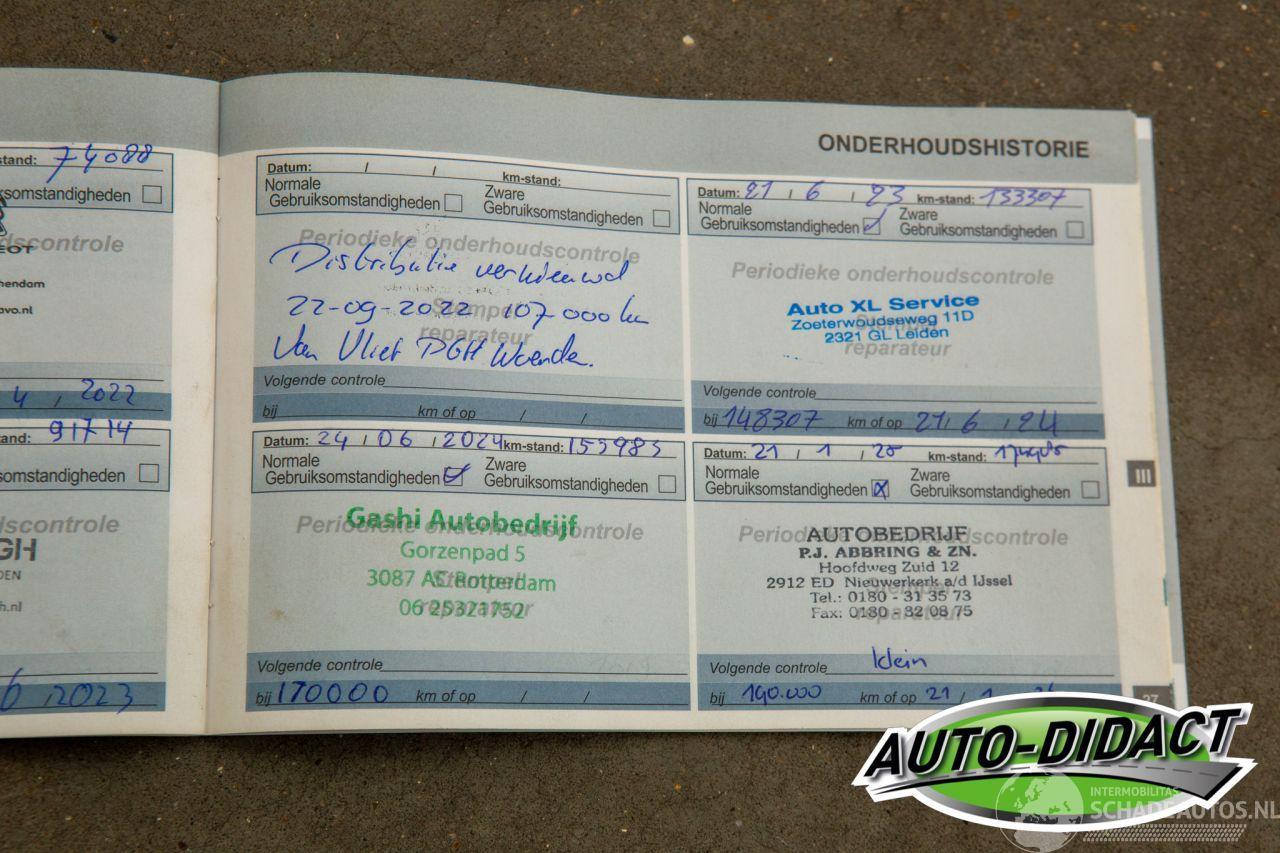 ONDERHOUDSHISTORIE
stand: 74088
ksomstandigheden
scontrole
EOT
hendam
avo.nl
4 , 2022
and: 91714
somstandigheden
scontrole
GH
DEN
h.nl
6 , 2023
Datum: / / km-stand:
Normale Gebruiksomstandigheden
Zware Gebruiksomstandigheden
Periodieke onderhoudscontrole
Stempel reparateur
Distributie vernieuwd
22-09-2022 107000 km
Van Vliet PGH
Volgende controle
bij km of op / /
Datum: 21 / 6 , 23 km-stand: 133307
Normale Gebruiksomstandigheden
Zware Gebruiksomstandigheden
Periodieke onderhoudscontrole
Auto XL Service
Zoeterwoudseweg 11D
2321 GL Leiden
reparateur
Volgende controle
bij 148307 km of op 21 / 6 , 24
Datum: 24 / 06 , 2024 km-stand: 153983
Normale Gebruiksomstandigheden
Zware Gebruiksomstandigheden
Periodieke onderhoudscontrole
Gashi Autobedrijf
Gorzenpad 5
3087 AC Rotterdam
06 25321752
Stempel reparateur
Volgende controle
bij 170000 km of op / /
Datum: 21 / 1 , 25 km-stand:
Normale Gebruiksomstandigheden
Zware Gebruiksomstandigheden
Periodieke onderhoudscontrole
AUTOBEDRIJF
P.J. ABBRING & ZN.
Hoofdweg Zuid 12
2912 ED Nieuwerkerk a/d IJssel
Tel.: 0180 - 31 35 73
Fax: 0180 - 32 08 75
reparateur
Volgende controle klein
bij 190.000 km of op 21 / 1
III
27
AUTO-DIDACT
INTERMOBILITAS
SCHADEAUTOS.NL